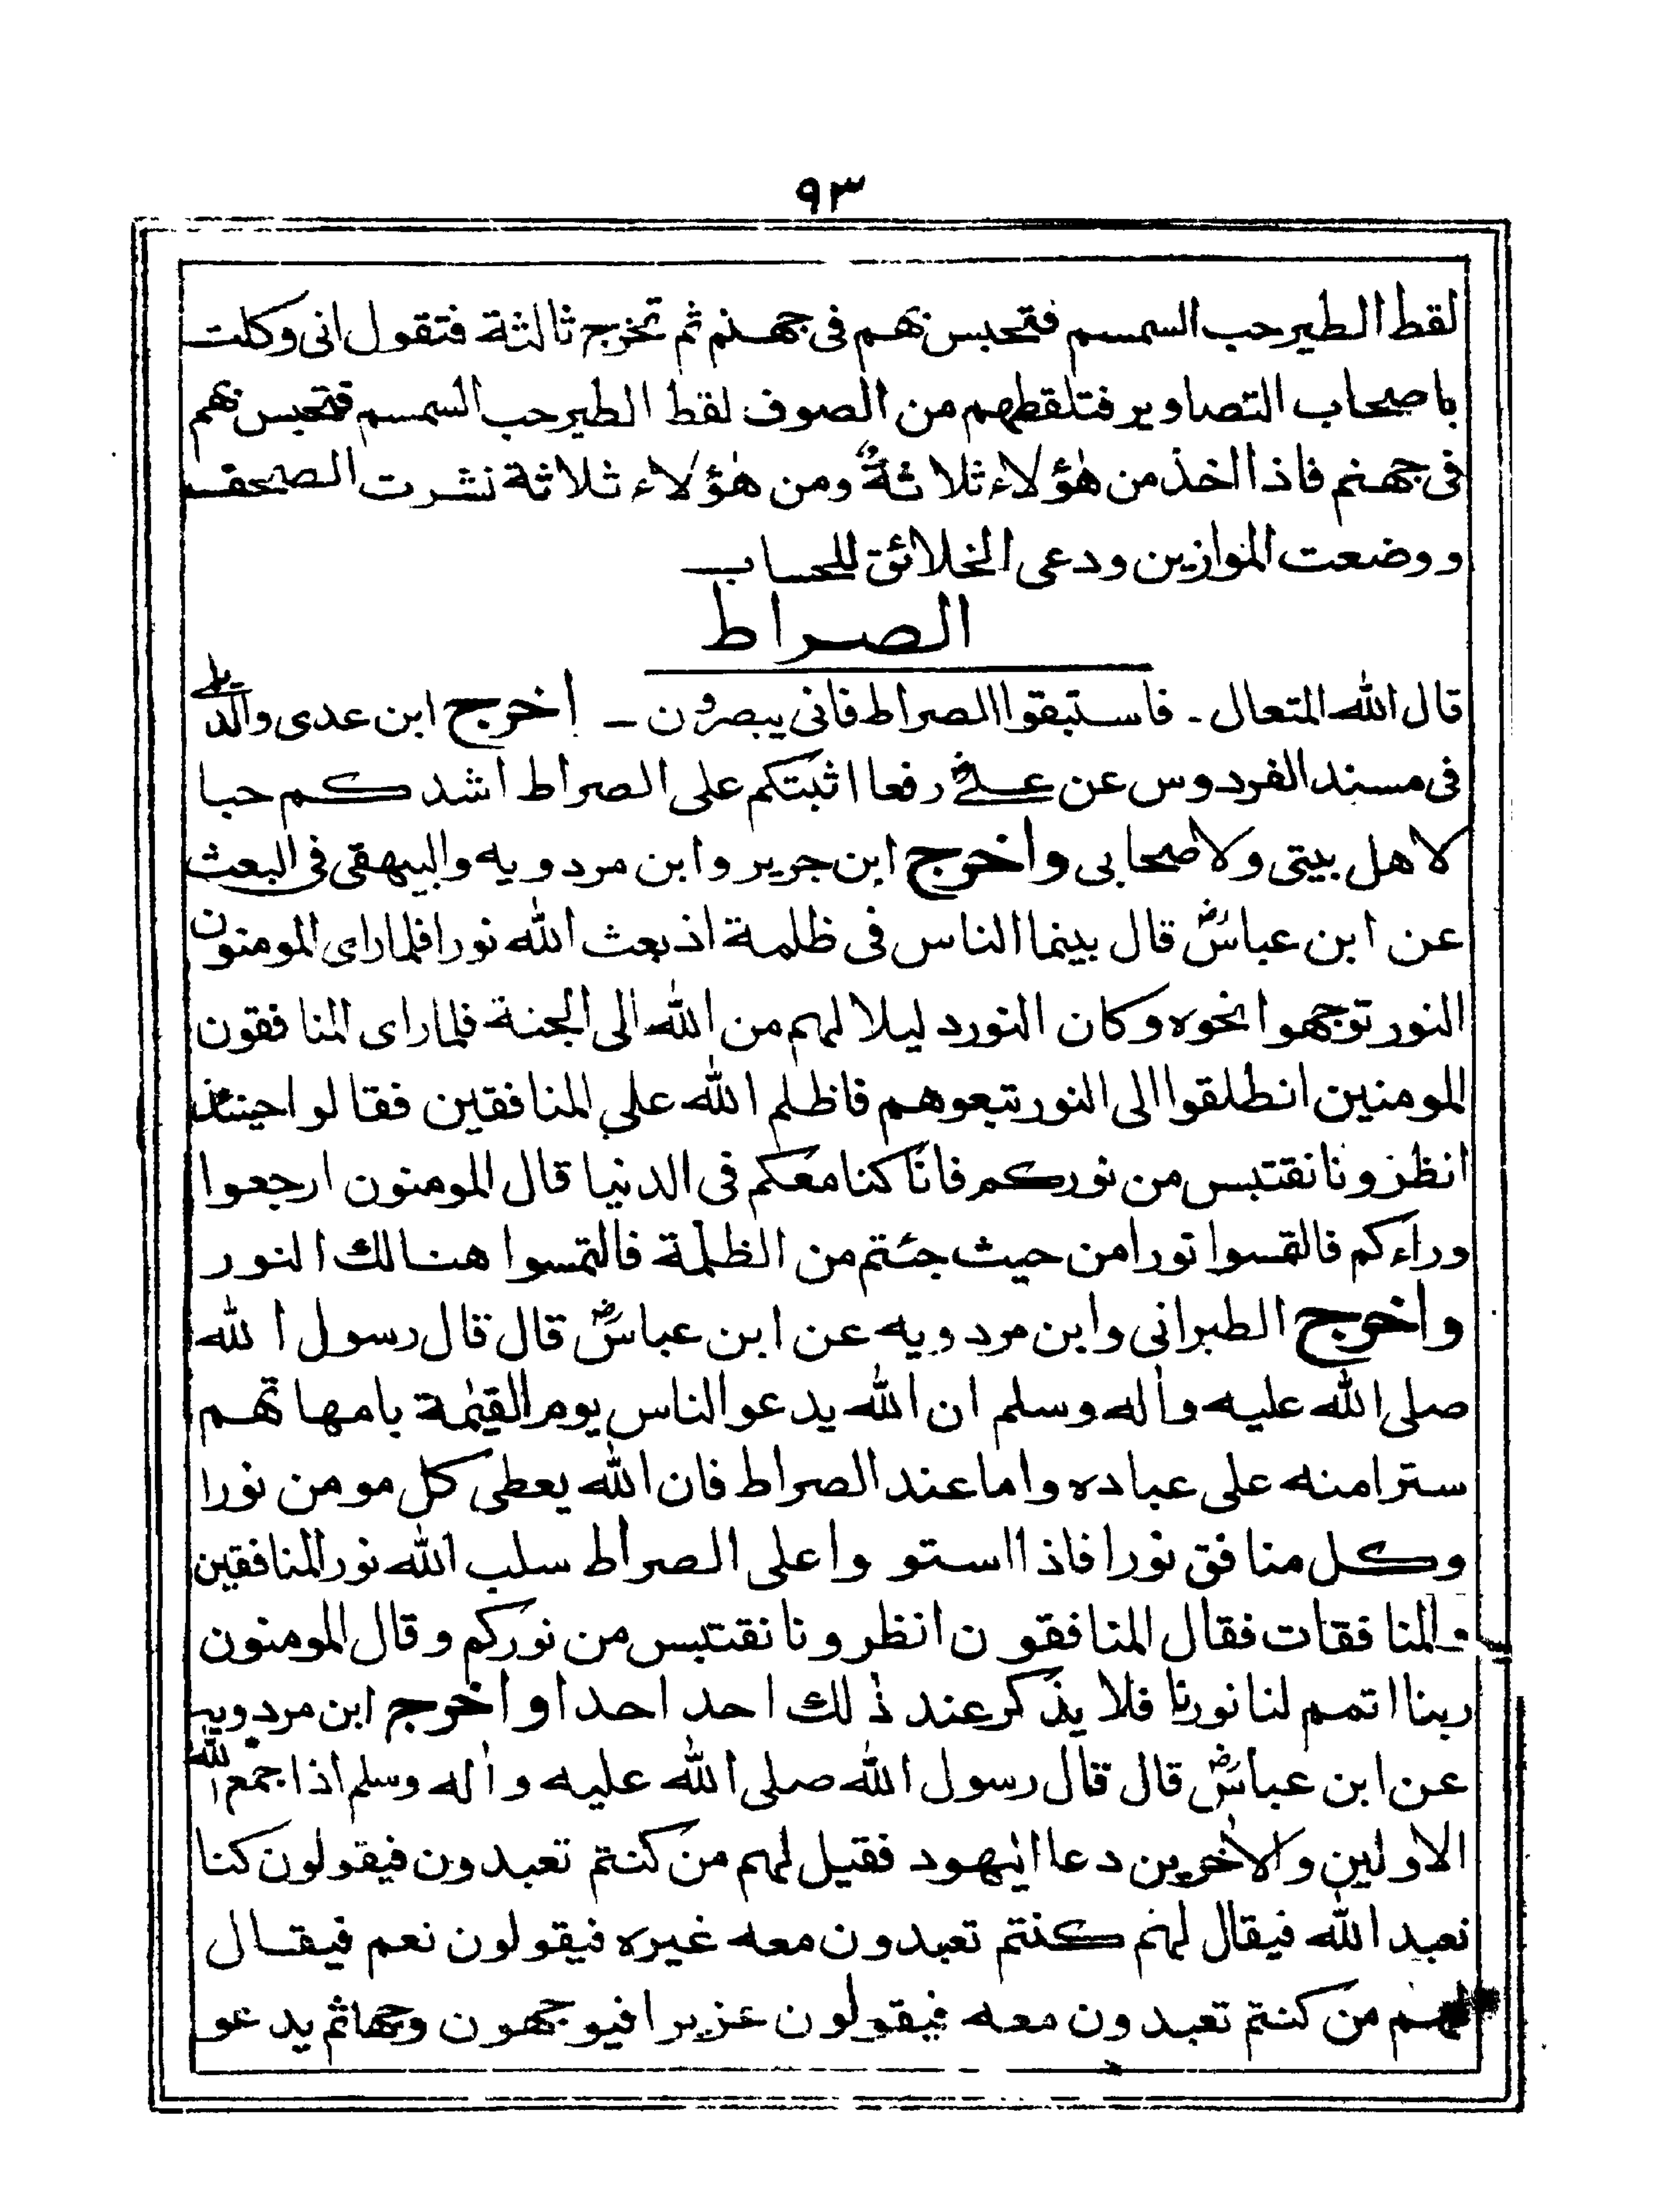 ٩٣
لقط الطير حب السمسم فتحبس بهم فى جهنم ثم تخرج ثالثة فتقول انى وكلت
باصحاب التصاوير فتلقطهم من الصوف لقط الطير حب السمسم فتحبس بهم
فى جهنم فاذا اخذ من هٰؤلاء ثلاثةٌ ومن هٰؤلاء ثلاثة نشرت الصحف
ووضعت الموازين ودعى الخلائق للحساب
الصراط
قال الله المتعال ۔ فاستبقوا الصراط فانى يبصرون ـ اخرج ابن عدى والديلى
فى مسند الفردوس عن علىؓ رفعا اثبتكم على الصراط اشدكم حبا
لاهل بيتى ولاصحابى واخرج ابن جرير وابن مردويه والبيهقى فى البعث
عن ابن عباسؓ قال بينما الناس فى ظلمة اذ بعث الله نورا فلما راى المومنون
النور توجهوا نحوه وكان النور دليلا لهم من الله الى الجنة فلما راى المنافقون
المومنين انطلقوا الى النور تبعوهم فاظلم الله على المنافقين فقالوا حينئذ
انظرونا نقتبس من نوركم فانا كنا معكم فى الدنيا قال المومنون ارجعوا
وراءكم فالتمسوا نورا من حيث جئتم من الظلمة فالتمسوا هنالك النور
واخرج الطبرانى وابن مردويه عن ابن عباسؓ قال قال رسول الله
صلى الله عليه واٰله وسلم ان الله يدعو الناس يوم القيٰمة بامهاتهم
سترا منه على عباده واما عند الصراط فان الله يعطى كل مومن نورا
وكل منافق نورا فاذا استووا على الصراط سلب الله نور المنافقين
والمنافقات فقال المنافقون انظرونا نقتبس من نوركم وقال المومنون
ربنا اتمم لنا نورنا فلا يذكر عند ذٰلك احد احدا واخرج ابن مردويه
عن ابن عباسؓ قال قال رسول الله صلى الله عليه واٰله وسلم اذا جمع الله
الاولين والاٰخرين دعا اليهود فقيل لهم من كنتم تعبدون فيقولون كنا
نعبد الله فيقال لهم كنتم تعبدون معه غيره فيقولون نعم فيقال
لهم من كنتم تعبدون معه فيقولون عزيرا فيوجهون وجها ثم يدعو